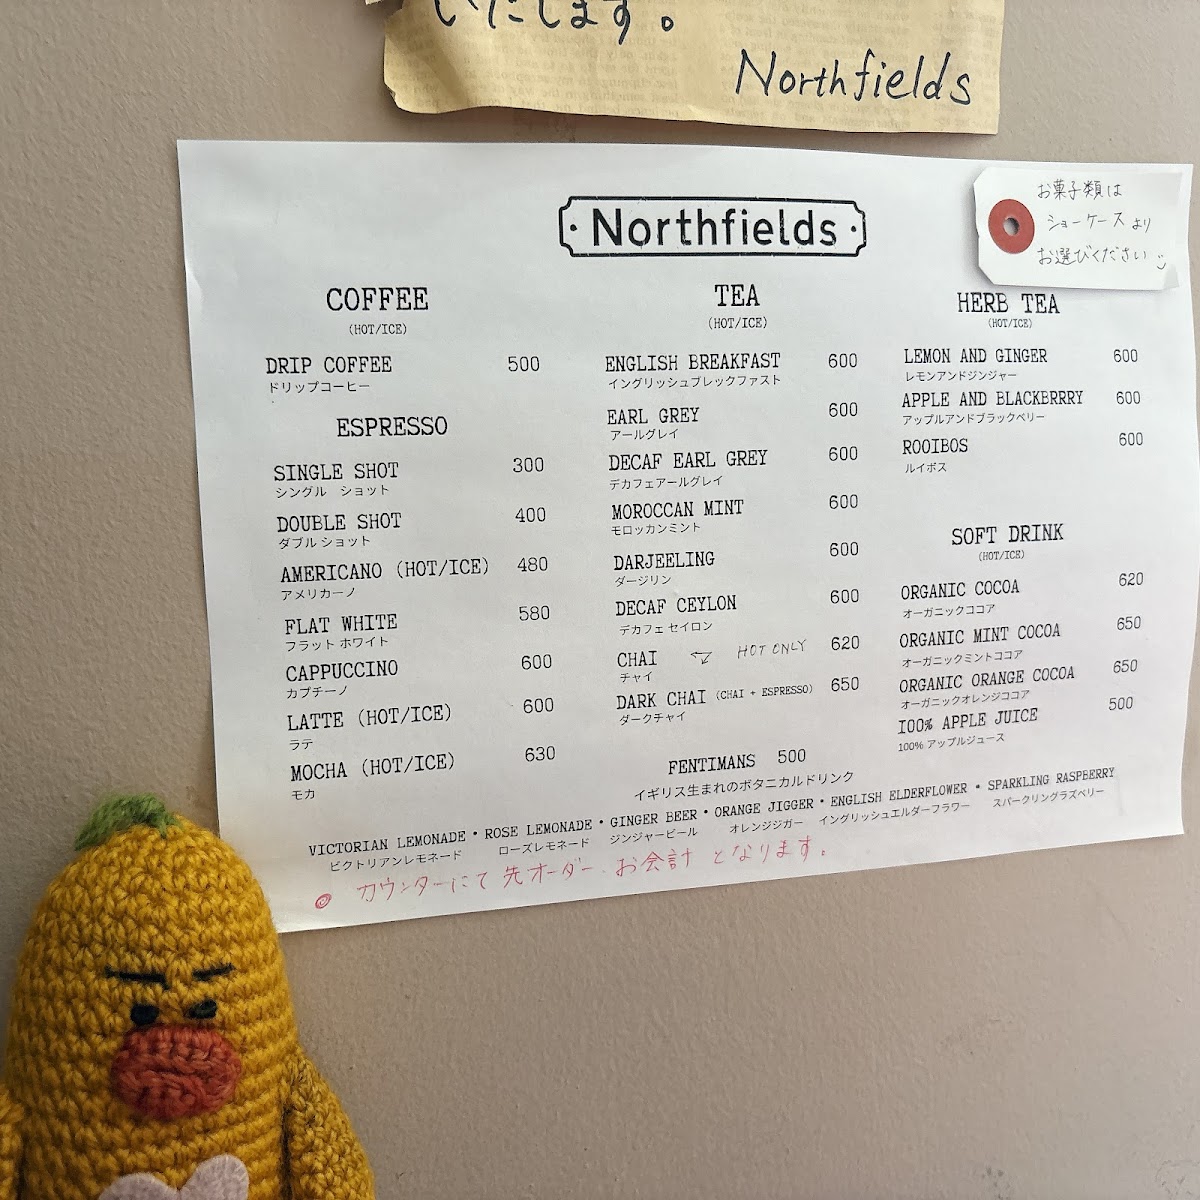 いたします。
Northfields
Northfields
お菓子類は
ショーケースより
お選びください
COFFEE
(HOT/ICE)
DRIP COFFEE 500
ドリップコーヒー
ESPRESSO
SINGLE SHOT 300
シングル ショット
DOUBLE SHOT 400
ダブルショット
AMERICANO (HOT/ICE) 480
アメリカーノ
FLAT WHITE 580
フラット ホワイト
CAPPUCCINO 600
カプチーノ
LATTE (HOT/ICE) 600
ラテ
MOCHA (HOT/ICE) 630
モカ
TEA
(HOT/ICE)
ENGLISH BREAKFAST 600
イングリッシュブレックファスト
EARL GREY 600
アールグレイ
DECAF EARL GREY 600
デカフェアールグレイ
MOROCCAN MINT 600
モロッカンミント
DARJEELING 600
ダージリン
DECAF CEYLON 600
デカフェ セイロン
CHAI HOT ONLY 620
チャイ
DARK CHAI (CHAI + ESPRESSO) 650
ダークチャイ
HERB TEA
(HOT/ICE)
LEMON AND GINGER 600
レモンアンドジンジャー
APPLE AND BLACKBRRRY 600
アップルアンドブラックベリー
ROOIBOS 600
ルイボス
SOFT DRINK
(HOT/ICE)
ORGANIC COCOA 620
オーガニックココア
ORGANIC MINT COCOA 650
オーガニックミントココア
ORGANIC ORANGE COCOA 650
オーガニックオレンジココア
100% APPLE JUICE 500
100% アップルジュース
FENTIMANS 500
イギリス生まれのボタニカルドリンク
VICTORIAN LEMONADE・ROSE LEMONADE・GINGER BEER・ORANGE JIGGER・ENGLISH ELDERFLOWER・SPARKLING RASPBERRY
ビクトリアンレモネード ローズレモネード ジンジャービール オレンジジガー イングリッシュエルダーフラワー スパークリングラズベリー
カウンターにて先オーダー、お会計となります。